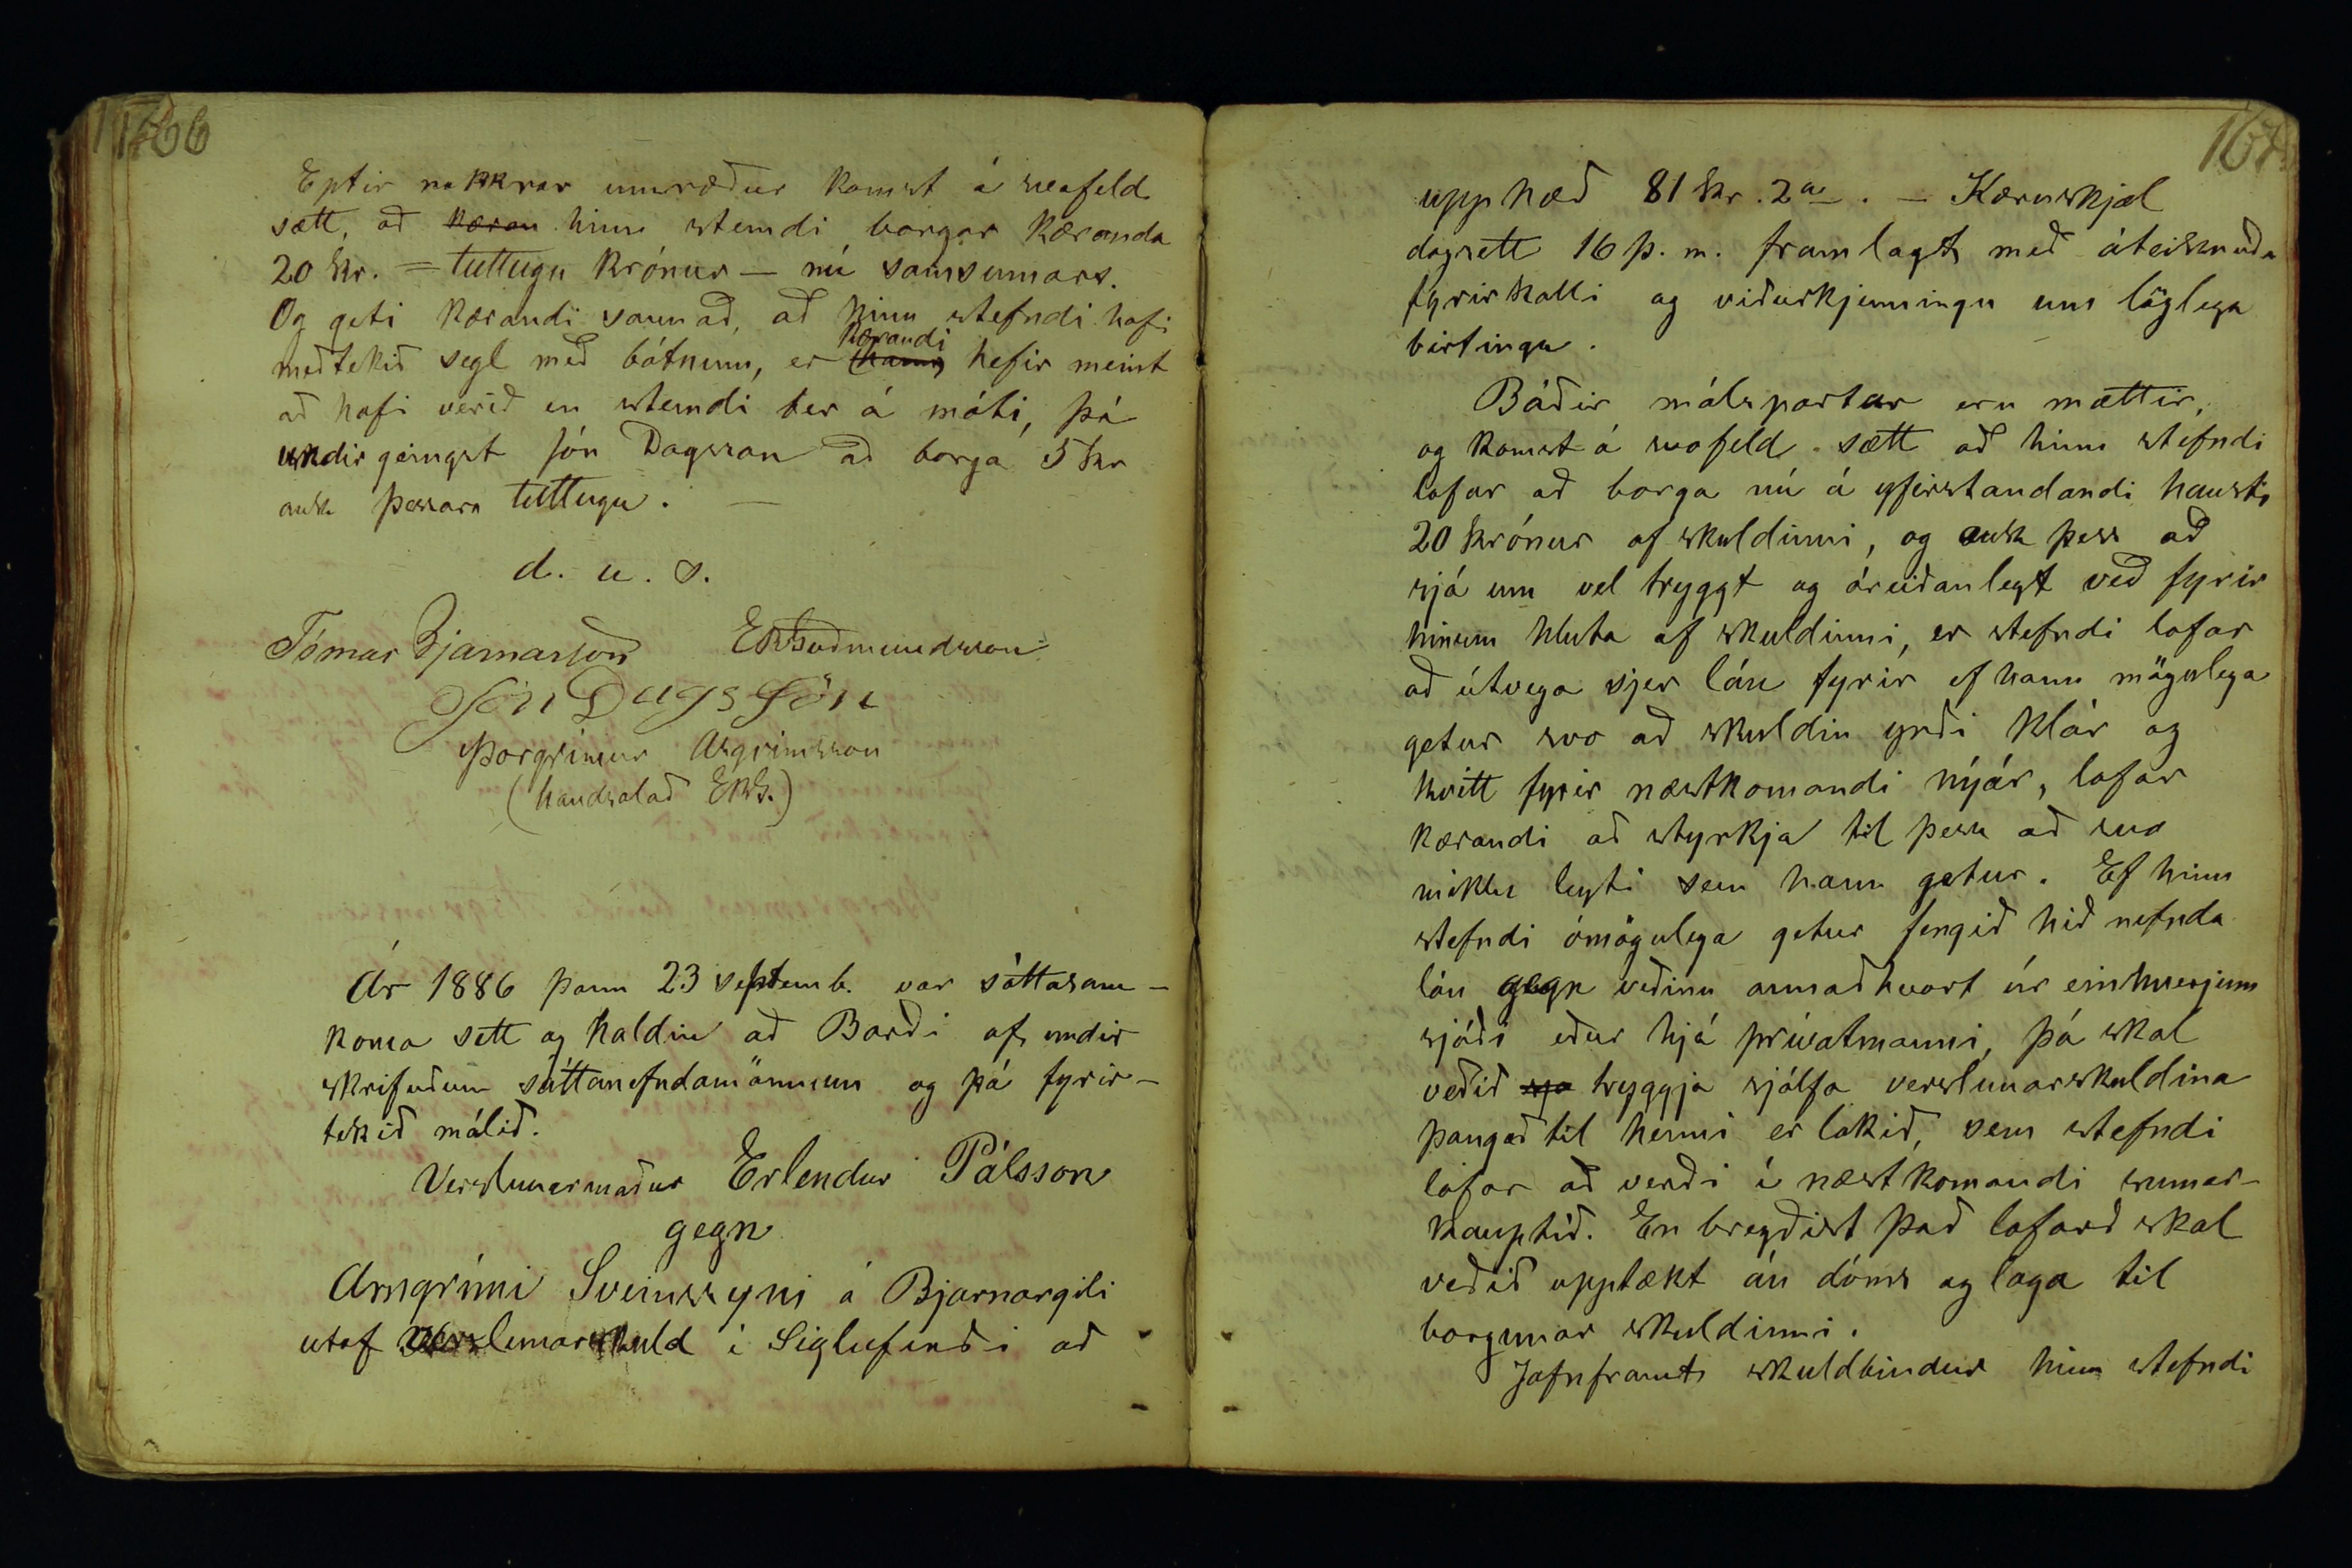 166
Eptir nokkrar umræður komst á svofeld
sætt, að kæran hinn stemdi borgar kæranda
20 kr. = tuttugu krónur — nú samsumars.
Og geti kærandi sannað, að hinn stefndi hafi
kærandi
meðtekið segl með bátnum, er (hann) hefir meint
að hafi verið en stemdi ber á móti, þá
undirgeingst Jón Dagsson að borga 5 kr
auk þessara tuttugu. —
d. u. s.
Tómas Bjarnarson EBGuðmundsson
Jón Dagsson
Þorgrímur Asgrimsson
(handsalað EBG.)
Ár 1886 þann 23 septemb. var sáttasam-
koma sett og haldin að Barði af undir
skrifuðum sáttanefndamönnum og þá fyrir-
tekið málið.
Verslunarmaður Erlendur Pálsson
gegn
Arngrími Sveinssyni á Bjarnargili
utaf verslunarskuld í Siglufirði að
167
upphæð 81 kr. 2 a. — Kæruskjal
dagsett 16 þ. m. framlagt með áteiknuðu
fyrirkalli og viðurkjenningu um löglega
birtingu.
Báðir málspartar eru mættir,
og komst á svofeld sætt að hinn stefndi
lofar að borga nú á yfirstandandi hausti
20 krónur af skuldinni, og auk þess að
sjá um vel tryggt og áreiðanlegt veð fyrir
hinum hluta af skuldinni, er stefndi lofar
að útvega sjer lán fyrir ef hann mögulega
getur svo að skuldin yrði klár og
kvitt fyrir næstkomandi nýár, lofar
kærandi að styrkja til þess að svo
miklu leyti sem hann getur. Ef hinn
stefndi ómögulega getur fengið hið nefnda
lán gegn veðinu annaðhvort úr einhverjum
sjóði eður hjá prívatmanni, þá skal
veðið sjá tryggja sjálfa verslunarskuldina
þangað til henni er lokið, sem stefndi
lofar að verði í næstkomandi sumar-
kauptíð. En bregðist það loforð skal
veðið upptækt án dóms og laga til
borgunar skuldinni.
Jafnframt skuldbindur hinn stefndi